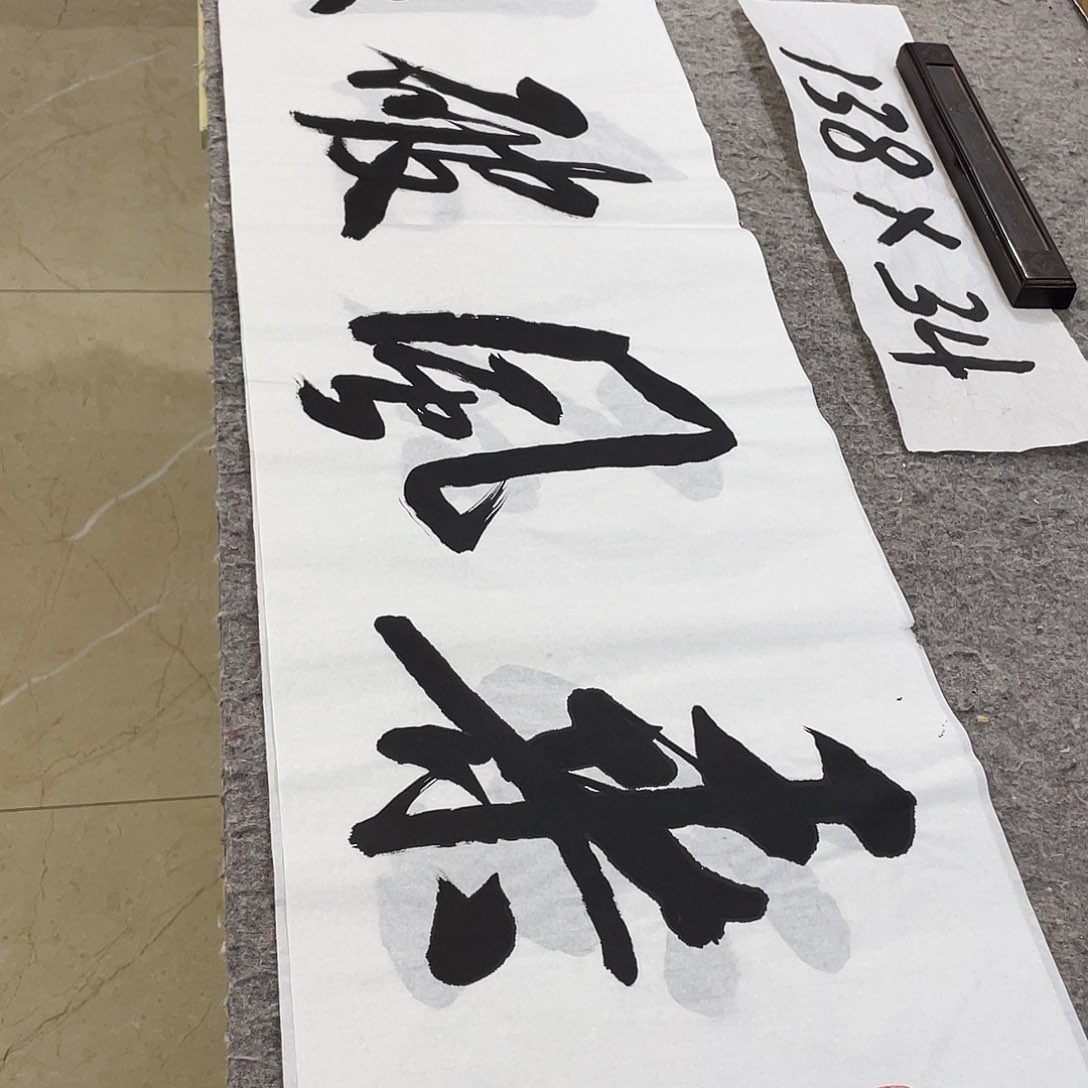 乘風破
138×34